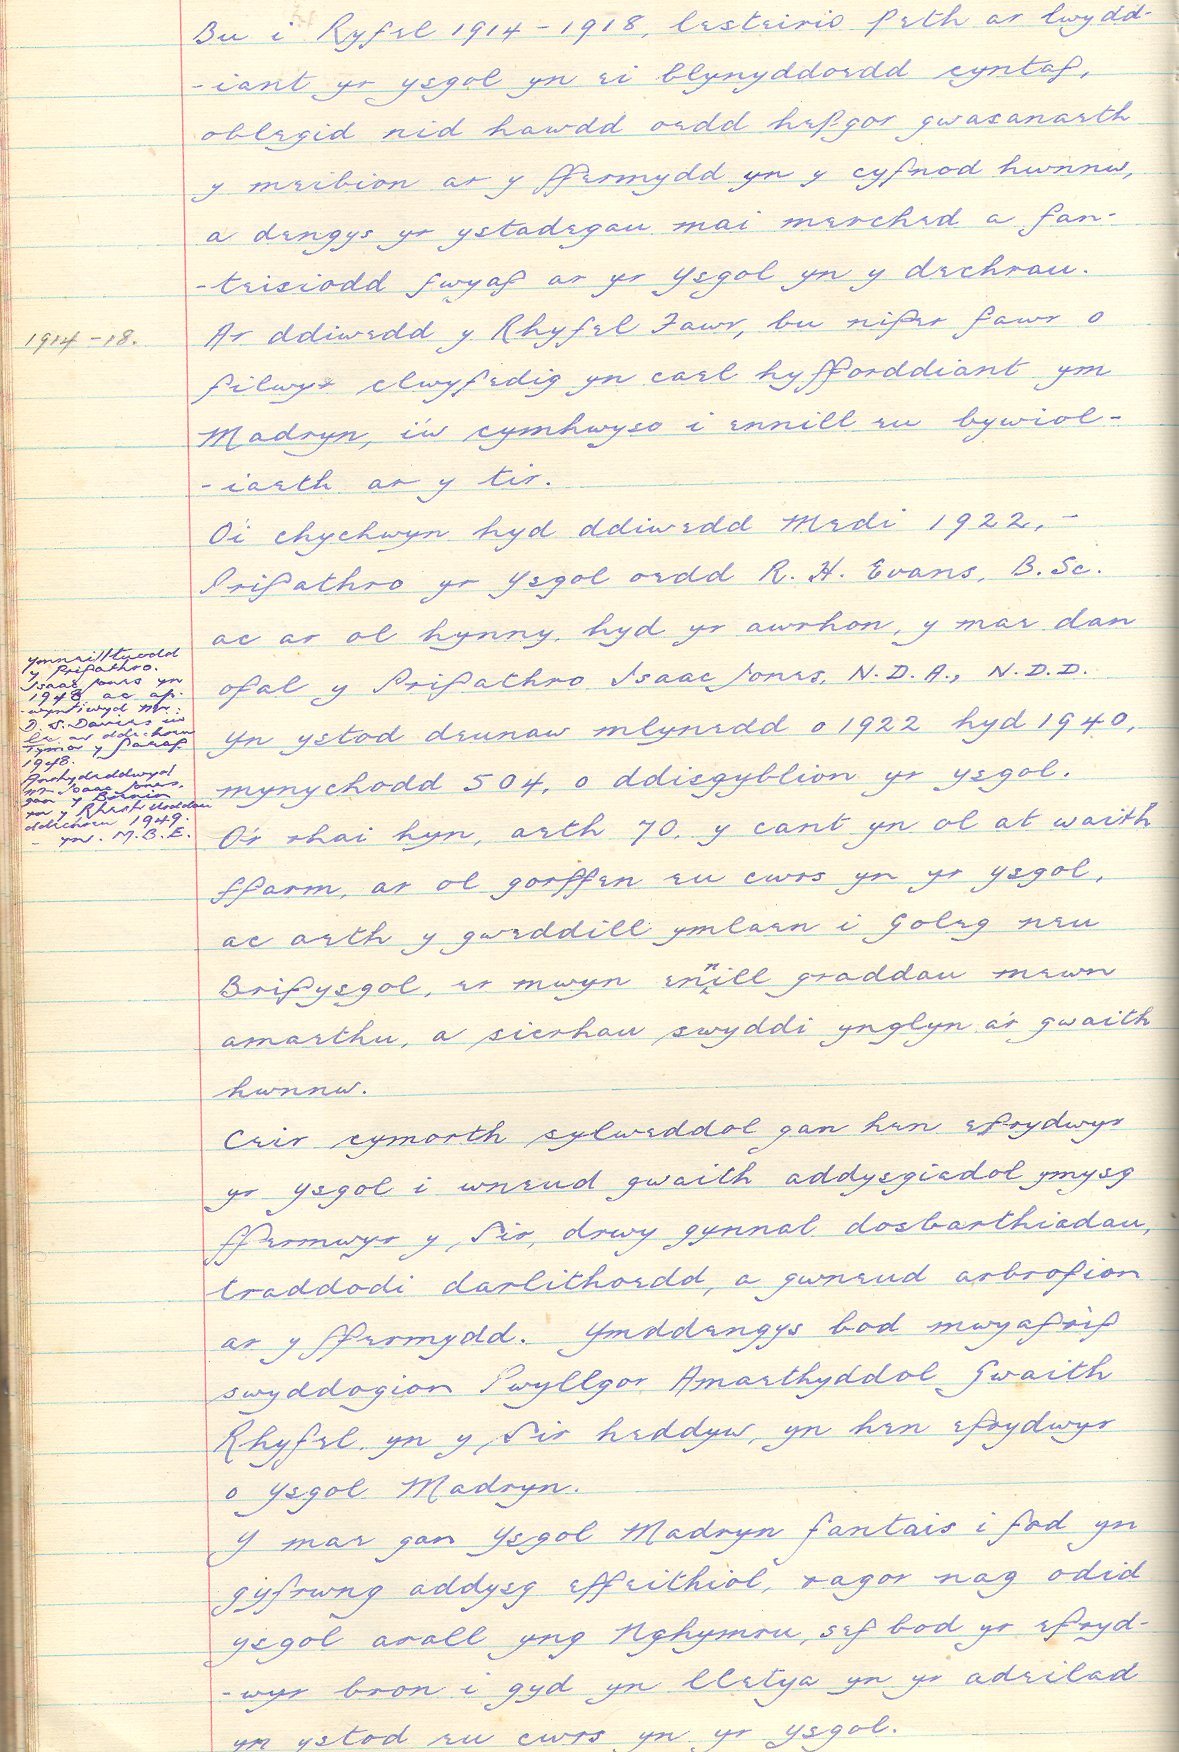 Bu i Ryfel 1914-1918, lesteirio peth ar lwydd-
-iant yr ysgol yn ei blynyddoedd cyntaf,
oblegid nid hawdd oedd hepgor gwasanaeth
y meibion ar y ffermydd yn y cyfnod hwnnw,
a dengys yr ystadegau mai merched a fan-
-teisiodd fwyaf ar yr Ysgol yn y dechrau.
1914-18.
Ar ddiwedd y Rhyfel Fawr, bu nifer fawr o
filwyr clwyfedig yn cael hyfforddiant ym
Madryn, i'w cymhwyso i ennill eu bywiol-
-iaeth ar y tir.
O'i chychwyn hyd ddiwedd Medi 1922, -
Prifathro yr Ysgol oedd R. H. Evans, B.Sc.
ac ar ol hynny, hyd yr awrhon, y mae dan
ofal y Prifathro Isaac Jones, N.D.A., N.D.D.
Yn ystod deunaw mlynedd o 1922 hyd 1940,
mynychodd 504, o ddisgyblion yr ysgol.
O'r rhai hyn, aeth 70. y cant yn ol at waith
ffarm, ar ol gorffen eu cwrs yn yr ysgol,
ac aeth y gweddill ymlaen i Goleg neu
Brifysgol, er mwyn ennill graddau mewn
amaethu, a sicrhau swyddi ynglyn a'r gwaith
hwnnw.
Ymneilltuodd
y Prifathro.
Isaac Jones yn
1948 ac ap-
-wyntiwyd Mr.
D. S. Davies iw
le ar ddechreu
tymor y Gaeaf
1948.
Anrhydeddwyd
Mr Isaac Jones.
gan y Brenin
yn y Rhestr Urddau
ddechreu 1949.
- yn. M.B.E.
Ceir cymorth sylweddol gan hen efrydwyr
yr Ysgol i wneud gwaith addysgiadol ymysg
ffermwyr y Sir, drwy gynnal dosbarthiadau,
traddodi darlithoedd, a gwneud arbrofion
ar y ffermydd. Ymddengys bod mwyafrif
swyddogion Pwyllgor Amaethyddol Gwaith
Rhyfel yn y Sir heddyw, yn hen efrydwyr
o Ysgol Madryn.
Y mae gan Ysgol Madryn fantais i fod yn
gyfrwng addysg effeithiol, ragor nag odid
ysgol arall yng Nghymru, sef bod yr efryd-
-wyr bron i gyd yn lletya yn yr adeilad
yn ystod eu cwrs yn yr Ysgol.